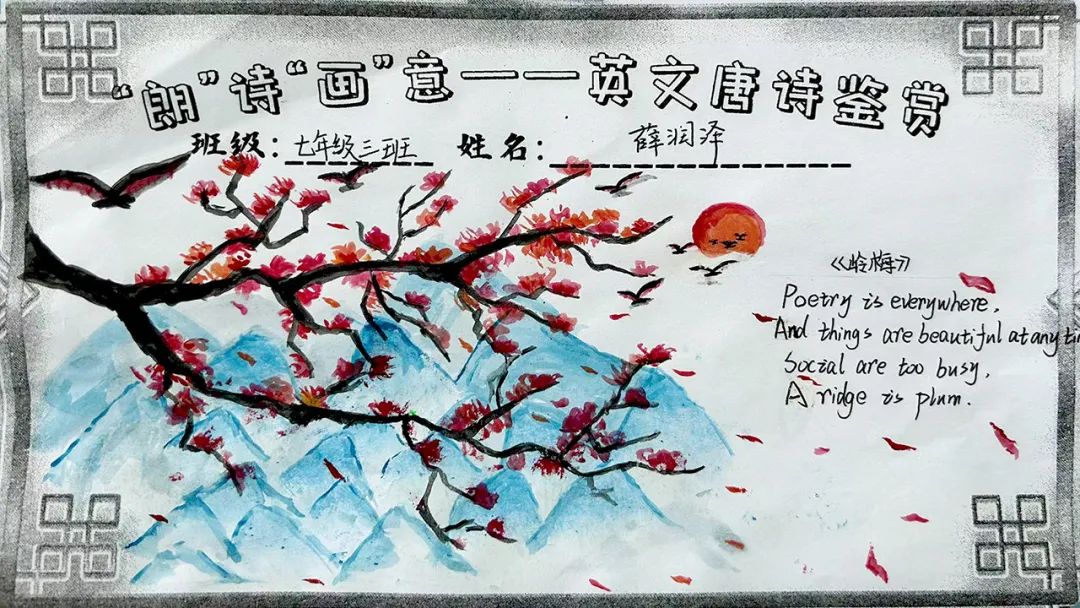 “朗”诗“画”意——英文唐诗鉴赏
班级：七年级三班 姓名：薛润泽
《岭梅》
Poetry is everywhere,
And things are beautiful at any ti
Social are too busy,
A ridge is plum.